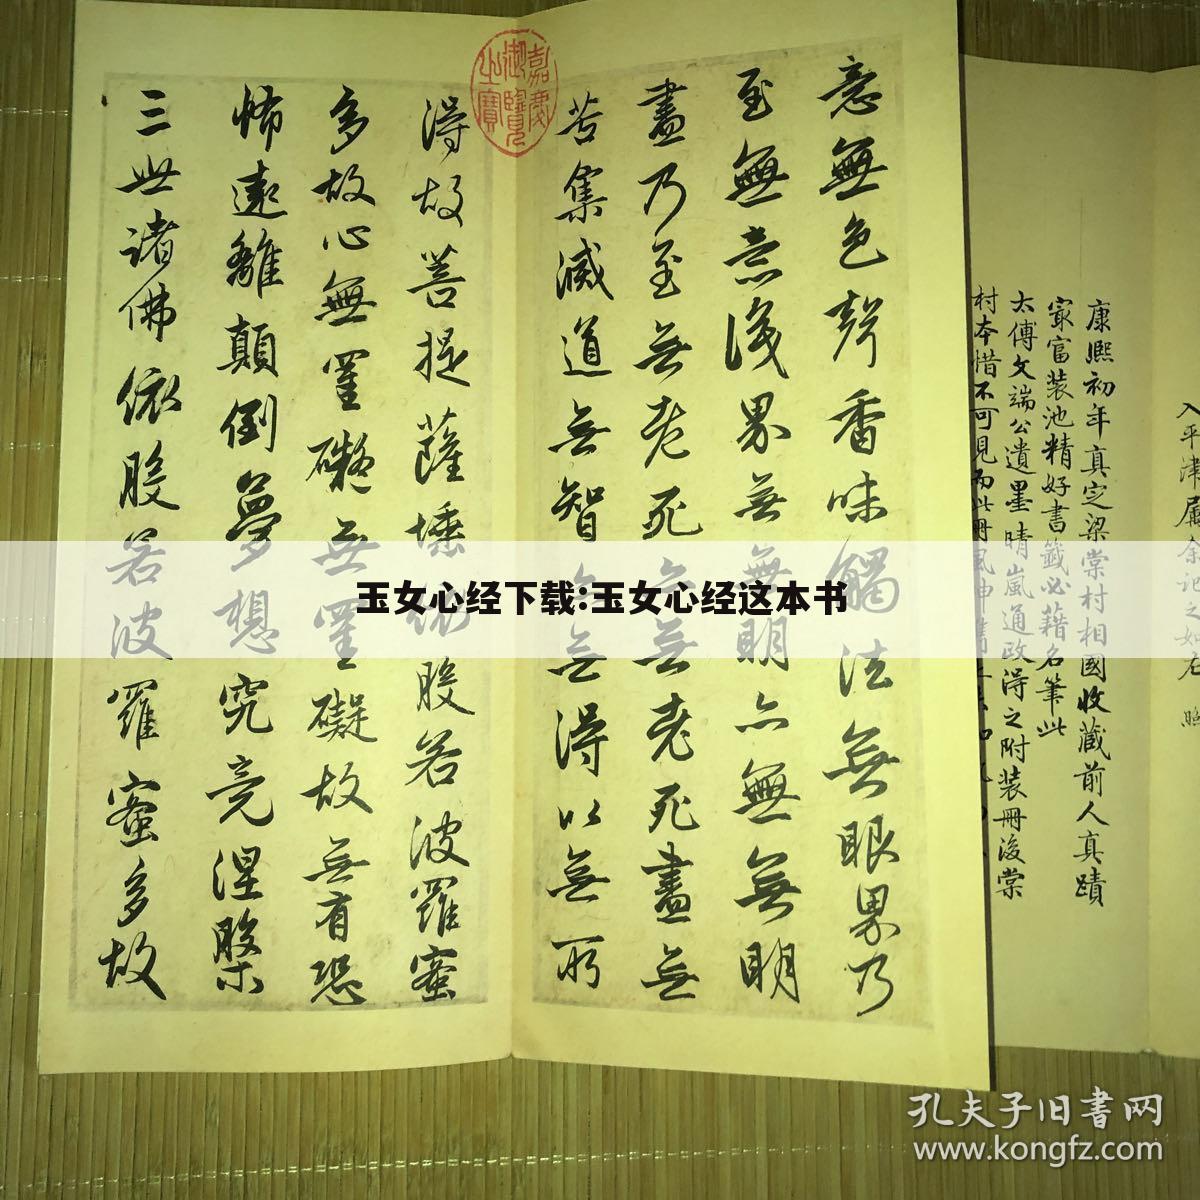 入平津屬余記之如右 照
康熙初年真定梁棠村相國收藏前人真蹟
冣富装池精好書籤必藉名筆此
太傅文端公遺墨晴嵐通政得之附装冊後棠
村本惜不可見而此冊風神
嘉慶御覽之寶
意無色聲香味觸法無眼界乃
至無意識界無無明亦無無明
盡乃至無老死亦無老死盡無
苦集滅道無智亦無得以無所
得故菩提薩埵依般若波羅蜜
多故心無罣礙無罣礙故無有恐
怖遠離顛倒夢想究竟涅槃
三世諸佛依般若波羅蜜多故
玉女心经下载:玉女心经这本书
孔夫子旧书网
www.kongfz.com